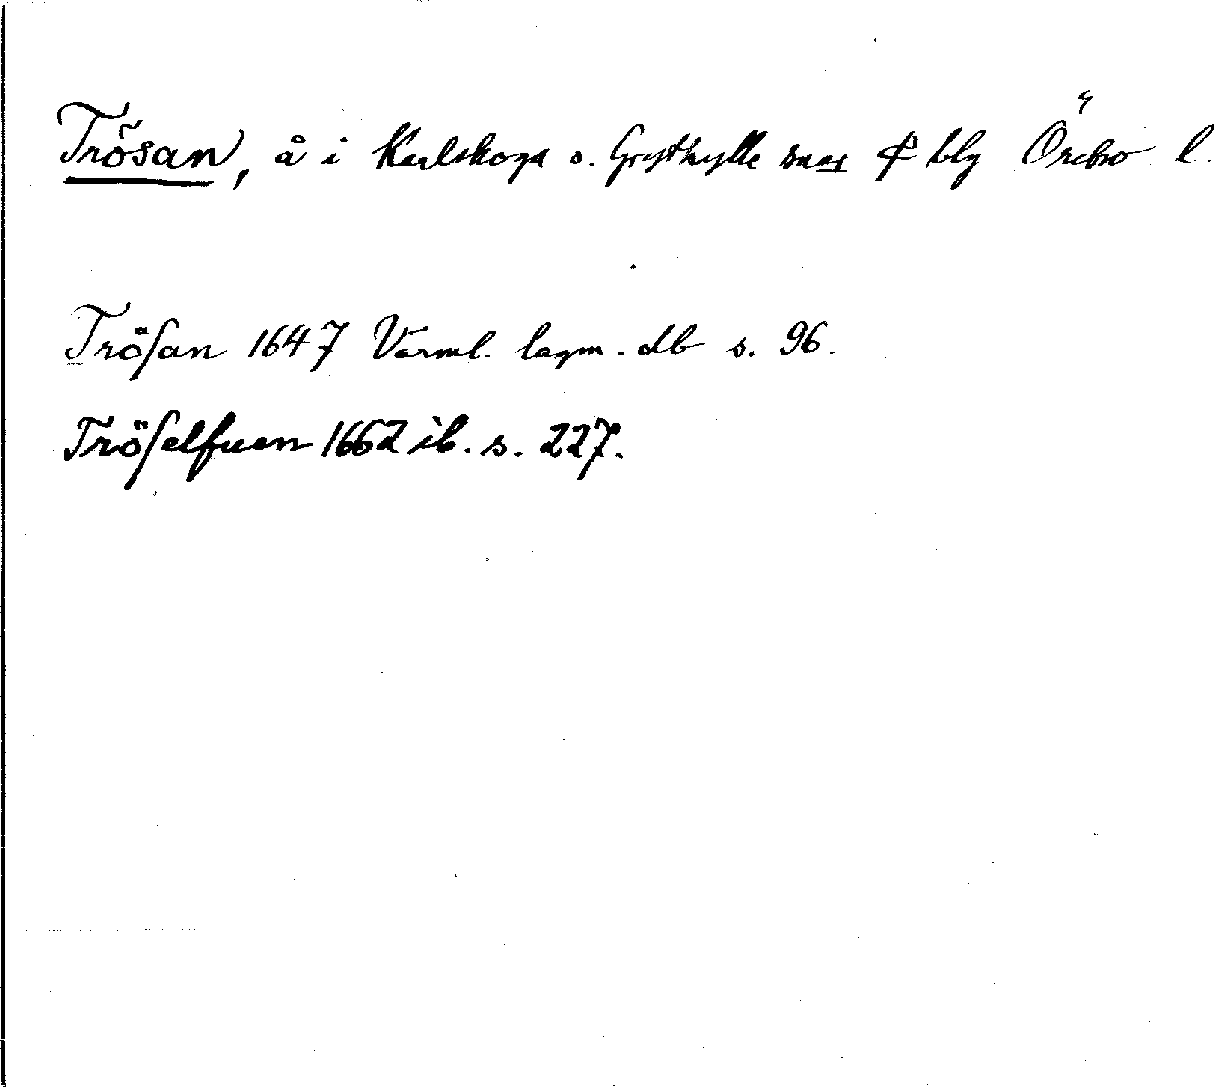 Trösan, å i Karlskoga o. Grythytte snar blg Örebro l.
Tröſan 1647 Värml. lagm. db s. 96.
Tröſelfuen 1662 ib. s. 227.